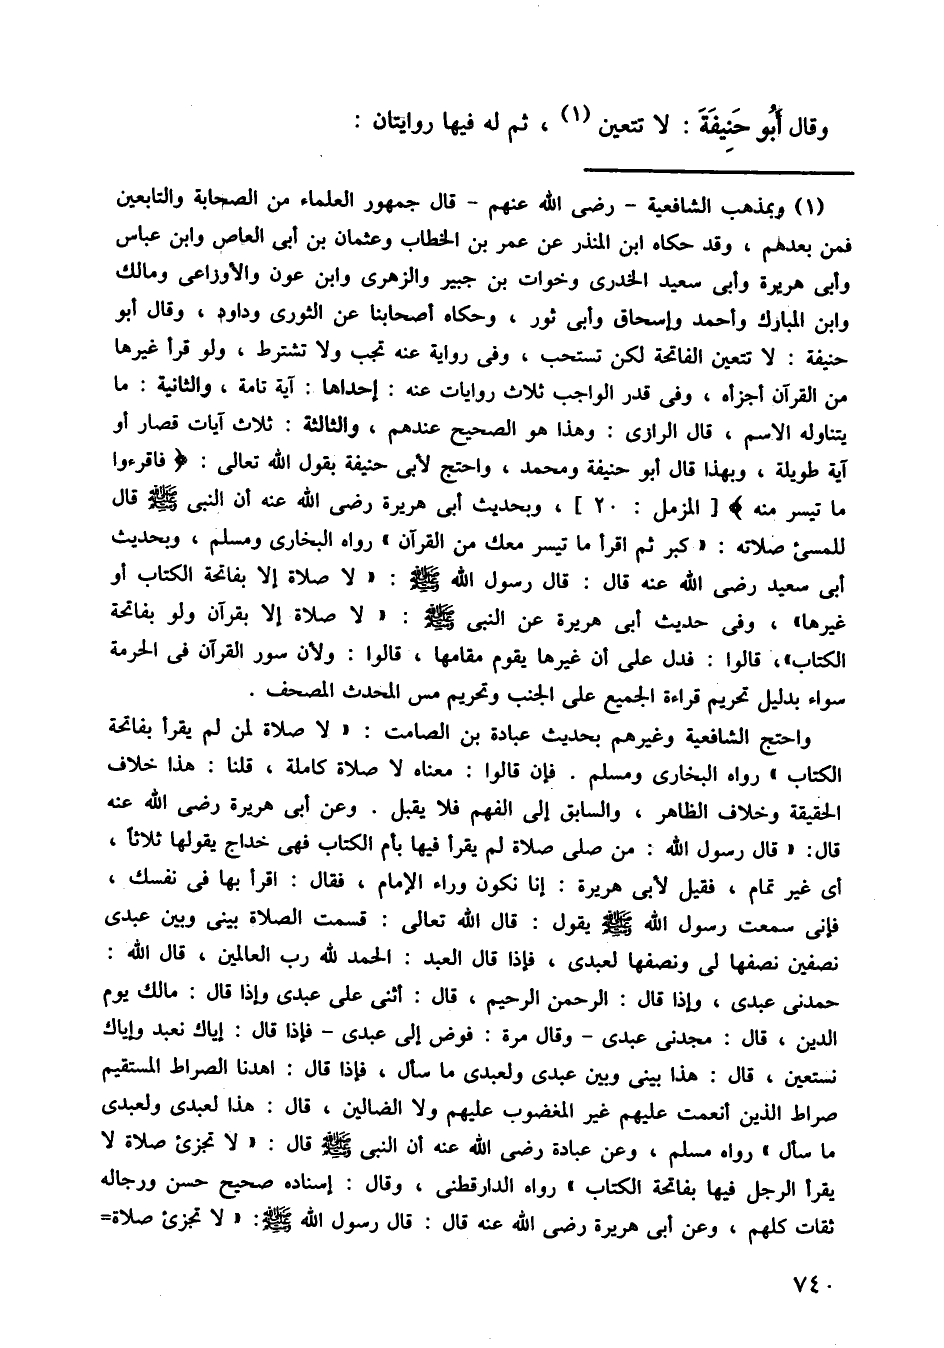 وقال أَبُو حَنِيفَةَ : لا تتعين (١) ، ثم له فيها روايتان :
(١) وبمذهب الشافعية – رضى الله عنهم – قال جمهور العلماء من الصحابة والتابعين
فمن بعدهم ، وقد حكاه ابن المنذر عن عمر بن الخطاب وعثمان بن أبى العاص وابن عباس
وأبى هريرة وأبى سعيد الخدرى وخوات بن جبير والزهرى وابن عون والأوزاعى ومالك
وابن المبارك وأحمد وإسحاق وأبى ثور ، وحكاه أصحابنا عن الثورى وداود ، وقال أبو
حنيفة : لا تتعين الفاتحة لكن تستحب ، وفى رواية عنه تجب ولا تشترط ، ولو قرأ غيرها
من القرآن أجزأه ، وفى قدر الواجب ثلاث روايات عنه : إحداها : آية تامة ، والثانية : ما
يتناوله الاسم ، قال الرازى : وهذا هو الصحيح عندهم ، والثالثة : ثلاث آيات قصار أو
آية طويلة ، وبهذا قال أبو حنيفة ومحمد ، واحتج لأبى حنيفة بقول الله تعالى : ﴿ فاقرءوا
ما تيسر منه ﴾ [ المزمل : ٢٠ ] ، وبحديث أبى هريرة رضى الله عنه أن النبى ﷺ قال
للمسئ صلاته : « كبر ثم اقرأ ما تيسر معك من القرآن » رواه البخارى ومسلم ، وبحديث
أبى سعيد رضى الله عنه قال : قال رسول الله ﷺ : « لا صلاة إلا بفاتحة الكتاب أو
غيرها» ، وفى حديث أبى هريرة عن النبى ﷺ : « لا صلاة إلا بقرآن ولو بفاتحة
الكتاب»، قالوا : فدل على أن غيرها يقوم مقامها ، قالوا : ولأن سور القرآن فى الحرمة
سواء بدليل تحريم قراءة الجميع على الجنب وتحريم مس المحدث المصحف .
واحتج الشافعية وغيرهم بحديث عبادة بن الصامت : « لا صلاة لمن لم يقرأ بفاتحة
الكتاب » رواه البخارى ومسلم . فإن قالوا : معناه لا صلاة كاملة ، قلنا : هذا خلاف
الحقيقة وخلاف الظاهر ، والسابق إلى الفهم فلا يقبل . وعن أبى هريرة رضى الله عنه
قال: « قال رسول الله : من صلى صلاة لم يقرأ فيها بأم الكتاب فهى خداج يقولها ثلاثاً ،
أى غير تمام ، فقيل لأبى هريرة : إنا نكون وراء الإمام ، فقال : اقرأ بها فى نفسك ،
فإنى سمعت رسول الله ﷺ يقول : قال الله تعالى : قسمت الصلاة بينى وبين عبدى
نصفين نصفها لى ونصفها لعبدى ، فإذا قال العبد : الحمد لله رب العالمين ، قال الله :
حمدنى عبدى ، وإذا قال : الرحمن الرحيم ، قال : أثنى على عبدى وإذا قال : مالك يوم
الدين ، قال : مجدنى عبدى – وقال مرة : فوض إلى عبدى – فإذا قال : إياك نعبد وإياك
نستعين ، قال : هذا بينى وبين عبدى ولعبدى ما سأل ، فإذا قال : اهدنا الصراط المستقيم
صراط الذين أنعمت عليهم غير المغضوب عليهم ولا الضالين ، قال : هذا لعبدى ولعبدى
ما سأل » رواه مسلم ، وعن عبادة رضى الله عنه أن النبى ﷺ قال : « لا تجزئ صلاة لا
يقرأ الرجل فيها بفاتحة الكتاب » رواه الدارقطنى ، وقال : إسناده صحيح حسن ورجاله
ثقات كلهم ، وعن أبى هريرة رضى الله عنه قال : قال رسول الله ﷺ: « لا تجزئ صلاة=
٧٤٠